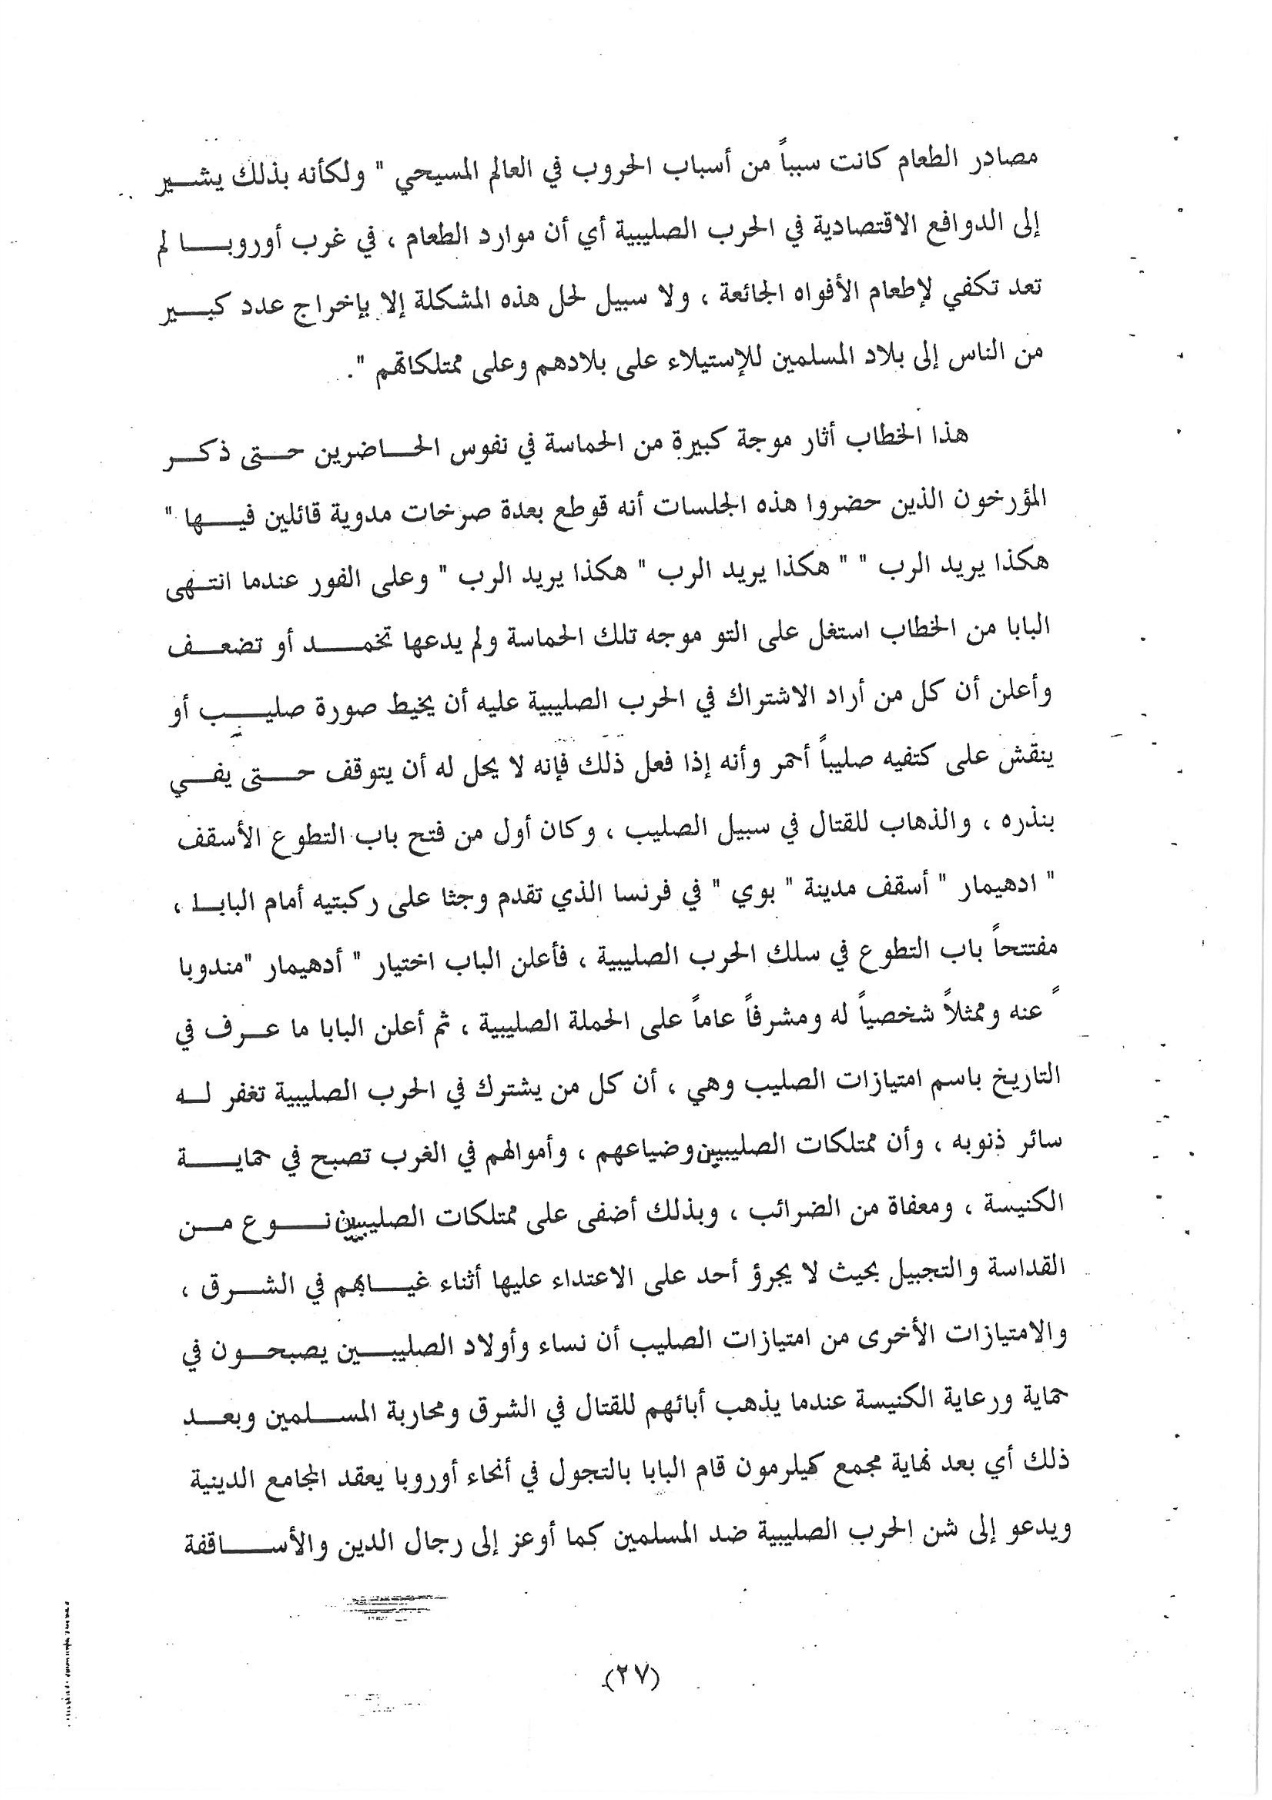 مصادر الطعام كانت سبباً من أسباب الحروب في العالم المسيحي " ولكأنه بذلك يشير
إلى الدوافع الاقتصادية في الحرب الصليبية أي أن موارد الطعام ، في غرب أوروبا لم
تعد تكفي لإطعام الأفواه الجائعة ، ولا سبيل لحل هذه المشكلة إلا بإخراج عدد كبير
من الناس إلى بلاد المسلمين للإستيلاء على بلادهم وعلى ممتلكاتهم ".
هذا الخطاب أثار موجة كبيرة من الحماسة في نفوس الحاضرين حتى ذكر
المؤرخون الذين حضروا هذه الجلسات أنه قوطع بعدة صرخات مدوية قائلين فيها "
هكذا يريد الرب " " هكذا يريد الرب " هكذا يريد الرب " وعلى الفور عندما انتهى
البابا من الخطاب استغل على التو موجه تلك الحماسة ولم يدعها تخمد أو تضعف
وأعلن أن كل من أراد الاشتراك في الحرب الصليبية عليه أن يخيط صورة صليب أو
ينقش على كتفيه صليباً أحمر وأنه إذا فعل ذلك فإنه لا يحل له أن يتوقف حتى يفي
بنذره ، والذهاب للقتال في سبيل الصليب ، وكان أول من فتح باب التطوع الأسقف
" ادهيمار " أسقف مدينة " بوي " في فرنسا الذي تقدم وجثا على ركبتيه أمام البابا ،
مفتتحاً باب التطوع في سلك الحرب الصليبية ، فأعلن الباب اختيار " أدهيمار "مندوبا
ً عنه وممثلاً شخصياً له ومشرفاً عاماً على الحملة الصليبية ، ثم أعلن البابا ما عرف في
التاريخ باسم امتيازات الصليب وهي ، أن كل من يشترك في الحرب الصليبية تغفر له
سائر ذنوبه ، وأن ممتلكات الصليبيين وضياعهم ، وأموالهم في الغرب تصبح في حماية
الكنيسة ، ومعفاة من الضرائب ، وبذلك أضفى على ممتلكات الصليبيين نوع من
القداسة والتجبيل بحيث لا يجرؤ أحد على الاعتداء عليها أثناء غيابهم في الشرق ،
والامتيازات الأخرى من امتيازات الصليب أن نساء وأولاد الصليبيين يصبحون في
حماية ورعاية الكنيسة عندما يذهب أبائهم للقتال في الشرق ومحاربة المسلمين وبعد
ذلك أي بعد نهاية مجمع كيلرمون قام البابا بالتجول في أنحاء أوروبا يعقد المجامع الدينية
ويدعو إلى شن الحرب الصليبية ضد المسلمين كما أوعز إلى رجال الدين والأساقفة
(٢٧)